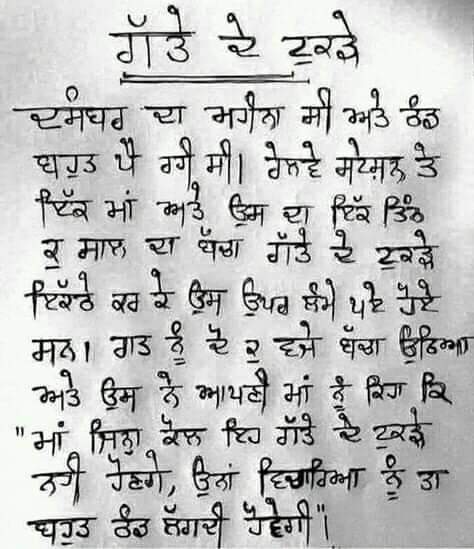 ਗੱਤੇ ਦੇ ਟੁਕੜੇ
ਦਸੰਬਰ ਦਾ ਮਹੀਨਾ ਸੀ ਅਤੇ ਠੰਡ
ਬਹੁਤ ਪੈ ਰਹੀ ਸੀ। ਰੇਲਵੇ ਸਟੇਸ਼ਨ ਤੇ
ਇੱਕ ਮਾਂ ਅਤੇ ਉਸ ਦਾ ਇੱਕ ਤਿੰਨ
ਕੁ ਸਾਲ ਦਾ ਬੱਚਾ ਗੱਤੇ ਦੇ ਟੁਕੜੇ
ਇਕੱਠੇ ਕਰ ਕੇ ਉਸ ਉਪਰ ਲੰਮੇ ਪਏ ਹੋਏ
ਸਨ। ਰਾਤ ਨੂੰ ਦੋ ਕੁ ਵਜੇ ਬੱਚਾ ਉਠਿਆ
ਅਤੇ ਉਸ ਨੇ ਆਪਣੀ ਮਾਂ ਨੂੰ ਕਿਹਾ ਕਿ
"ਮਾਂ ਜਿਨ੍ਹਾ ਕੋਲ ਇਹ ਗੱਤੇ ਦੇ ਟੁਕੜੇ
ਨਹੀ ਹੋਣਗੇ, ਉਨਾਂ ਵਿਚਾਰਿਆ ਨੂੰ ਤਾ
ਬਹੁਤ ਠੰਡ ਲੱਗਦੀ ਹੋਵੇਗੀ"।